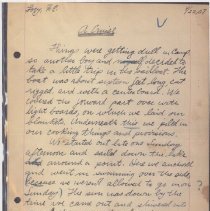 A Cruise
Things were getting dull in camp
so another boy and myself decided to
take a little trip in the sailboat. The
boat was about sixteen feet long cat
rigged and with a centerboard. We
covered the forward part over with
light boards, on which we laid our
blankets. Underneath this we put in
our cooking things and provisions.
We started out late one Sunday
afternoon and sailed down the lake
around a point. Here we anchored
and went in swimming over the side,
because we weren't allowed to go in on
Sunday) The sun was down by the
time we came out and